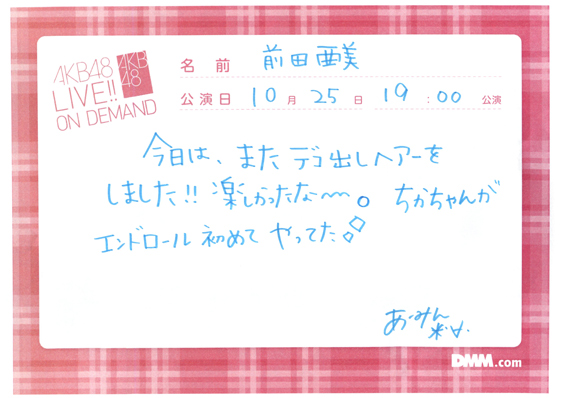 AKB48
LIVE!!
ON DEMAND
AKB
48
名前 前田亜美
公演日 10月25日 19:00公演
今日は、また デコ出しヘアーを
しました!! 楽しかったな〜〜。 ちかちゃんが
エンドロール 初めて やってた!
あーみん
DMM.com